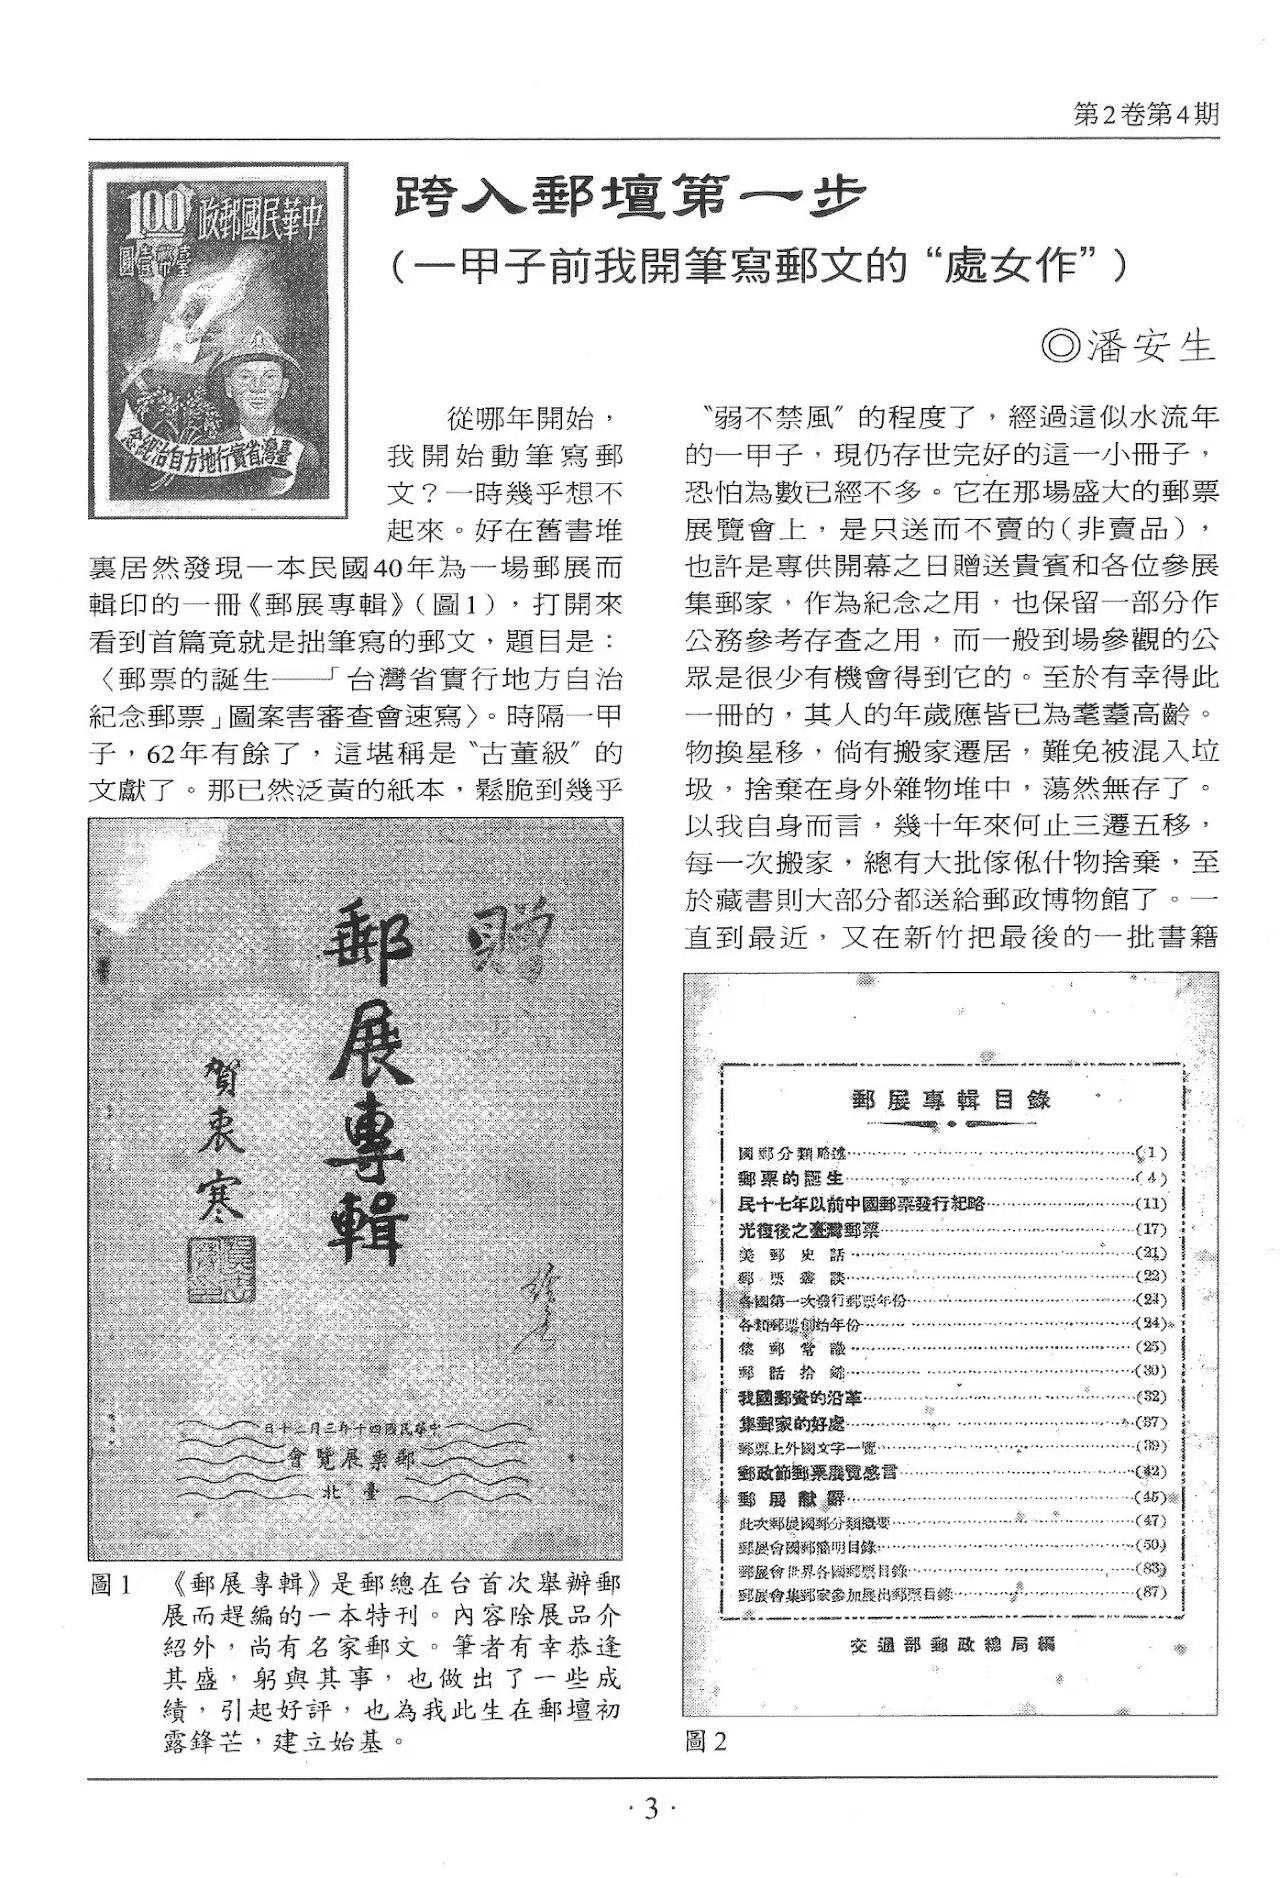 第2卷第4期
中華民國郵政
100
臺幣壹圓
臺灣省實行地方自治紀念
跨入郵壇第一步
（一甲子前我開筆寫郵文的“處女作”）
◎潘安生
從哪年開始，
我開始動筆寫郵
文？一時幾乎想不
起來。好在舊書堆
裏居然發現一本民國40年為一場郵展而
輯印的一冊《郵展專輯》（圖1），打開來
看到首篇竟就是拙筆寫的郵文，題目是：
〈郵票的誕生——「台灣省實行地方自治
紀念郵票」圖案審查會速寫〉。時隔一甲
子，62年有餘了，這堪稱是〝古董級〞的
文獻了。那已然泛黃的紙本，鬆脆到幾乎
郵展專輯
贈
賀衷寒
中華民國四十年三月二十日
郵票展覽會
臺北
圖1　《郵展專輯》是郵總在台首次舉辦郵
展而趕編的一本特刊。內容除展品介
紹外，尚有名家郵文。筆者有幸恭逢
其盛，躬與其事，也做出了一些成
績，引起好評，也為我此生在郵壇初
露鋒芒，建立始基。
〝弱不禁風〞的程度了，經過這似水流年
的一甲子，現仍存世完好的這一小冊子，
恐怕為數已經不多。它在那場盛大的郵票
展覽會上，是只送而不賣的（非賣品），
也許是專供開幕之日贈送貴賓和各位參展
集郵家，作為紀念之用，也保留一部分作
公務參考存查之用，而一般到場參觀的公
眾是很少有機會得到它的。至於有幸得此
一冊的，其人的年歲應皆已為耄耋高齡。
物換星移，倘有搬家遷居，難免被混入垃
圾，捨棄在身外雜物堆中，蕩然無存了。
以我自身而言，幾十年來何止三遷五移，
每一次搬家，總有大批傢俬什物捨棄，至
於藏書則大部分都送給郵政博物館了。一
直到最近，又在新竹把最後的一批書籍
郵展專輯目錄
國郵分類略述(1)
郵票的誕生(4)
民十七年以前中國郵票發行紀略(11)
光復後之臺灣郵票(17)
美郵史話(21)
郵票叢談(22)
各國第一次發行郵票年份(24)
各類郵票創始年份(24)
集郵常識(25)
郵話拾錦(30)
我國郵資的沿革(32)
集郵家的好處(37)
郵票上外國文字一覽(39)
郵政節郵票展覽感言(42)
郵展獻辭(45)
此次郵展國郵分類概要(47)
郵展會國郵簡明目錄(50)
郵展會世界各國郵票目錄(83)
郵展會集郵家參加展出郵票目錄(87)
交通部郵政總局編
圖2
·3·